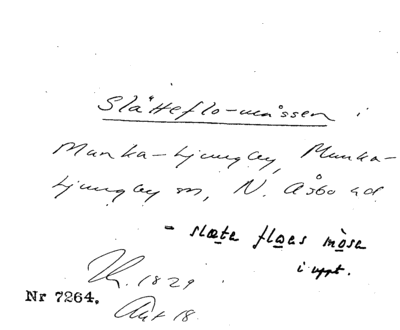 Slätteflo-måssen i
Munka-Ljungby, Munka-
Ljungby sn, N. Åsbo hd
- slæta floas måsa
i uppt.
1829
Nr 7264. Akt 18